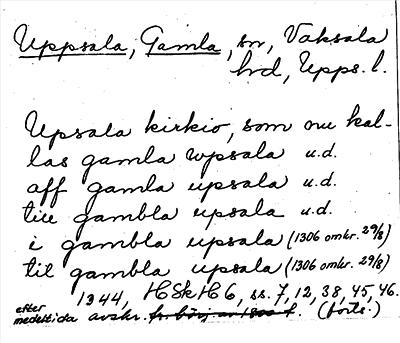 Uppsala, Gamla, sn, Vaksala
hrd, Upps. l.
Upsala kirkio, som nu kal-
las gamla wpsala u.d.
aff gamla upsala u.d.
till gambla upsala u.d.
i gambla upsala (1306 omkr. 29/8)
til gambla upsala (1306 omkr. 29/8)
1344, HSkH 6, ss. 7, 12, 38, 45, 46.
efter
medeltida avskr. (forts.)